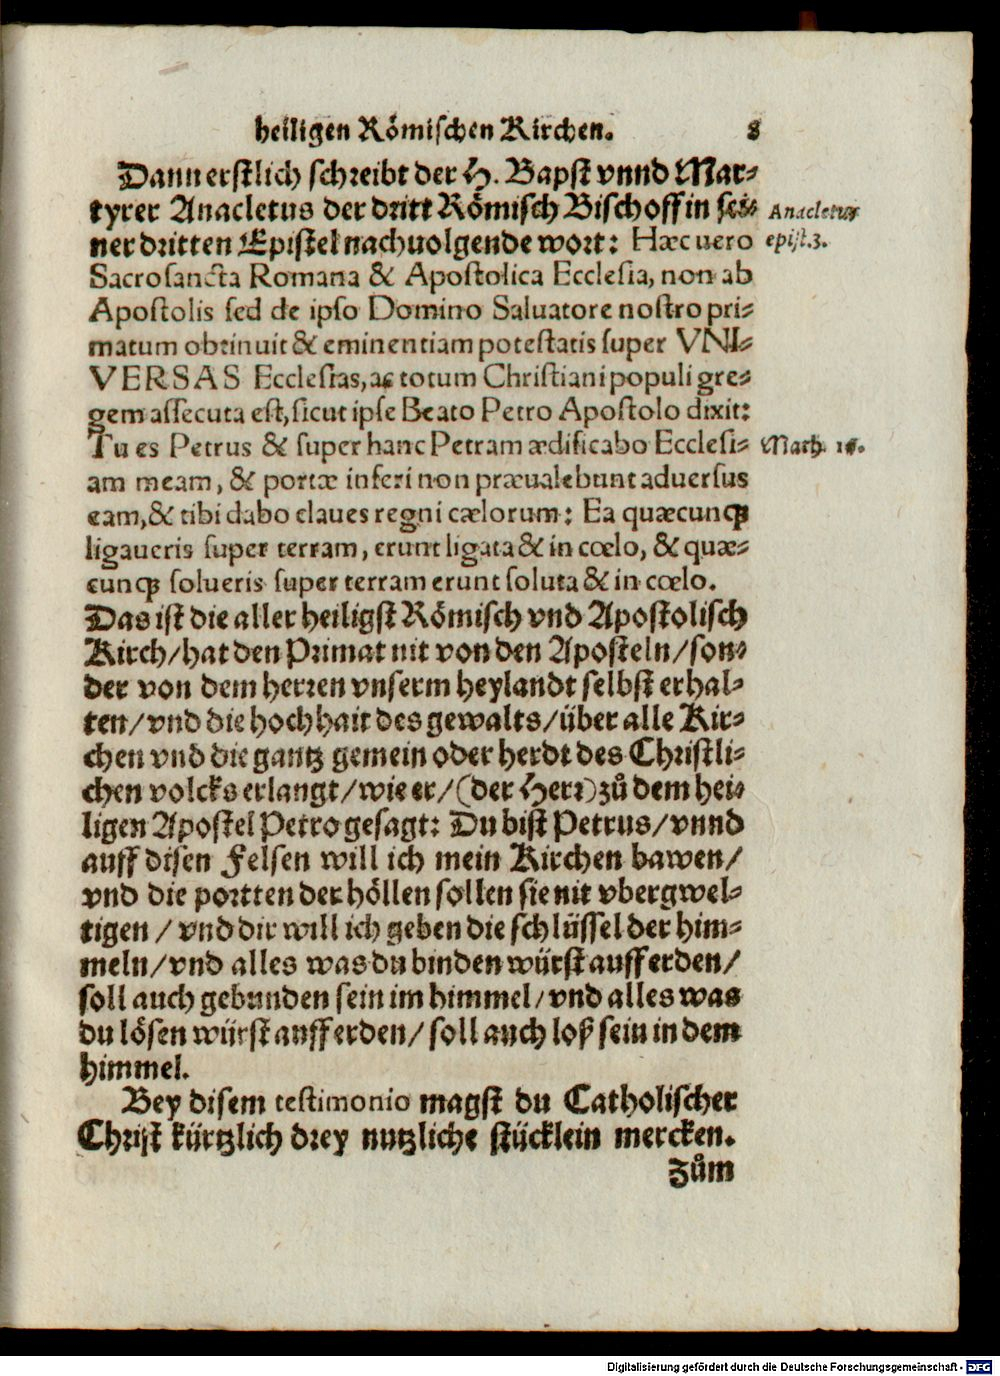 heiligen Römischen Kirchen. 8
Dann erstlich schreibt der H. Bapst vnnd Mar⸗
tyrer Anacletus der dritt Römisch Bischoff in sei⸗ Anacletus
ner dritten Epistel nachuolgende wort: Hæc uero epist.3.
Sacrosancta Romana & Apostolica Ecclesia, non ab
Apostolis sed de ipso Domino Saluatore nostro pri⸗
matum obtinuit & eminentiam potestatis super VNI⸗
VERSAS Ecclesias, ac totum Christiani populi gre⸗
gem assecuta est, sicut ipse Beato Petro Apostolo dixit:
Tu es Petrus & super hanc Petram ædificabo Ecclesi⸗ Math. 16.
am meam, & portæ inferi non præualebunt aduersus
eam, & tibi dabo claues regni cælorum: Ea quæcunqꝫ
ligaueris super terram, erunt ligata & in cœlo, & quæ⸗
cunqꝫ solueris super terram erunt soluta & in cœlo.
Das ist die aller heiligst Römisch vnd Apostolisch
Kirch/ hat den Primat nit von den Aposteln/ son⸗
der von dem herren vnserm heylandt selbst erhal⸗
ten/ vnd die hochhait des gewalts/ über alle Kir⸗
chen vnd die gantz gemein oder herdt des Christli⸗
chen volcks erlangt/ wie er/ (der Herr) zů dem hei⸗
ligen Apostel Petro gesagt: Du bist Petrus/ vnnd
auff disen Felsen will ich mein Kirchen bawen/
vnd die portten der höllen sollen sie nit vbergwel⸗
tigen / vnd dir will ich geben die schlüssel der him⸗
meln/ vnd alles was du binden würst auff erden/
soll auch gebunden sein im himmel/ vnd alles was
du lösen würst auff erden/ soll auch loß sein in dem
himmel.
Bey disem testimonio magst du Catholischer
Christ kürtzlich drey nutzliche stücklein mercken.
Zům
Digitalisierung gefördert durch die Deutsche Forschungsgemeinschaft - DFG